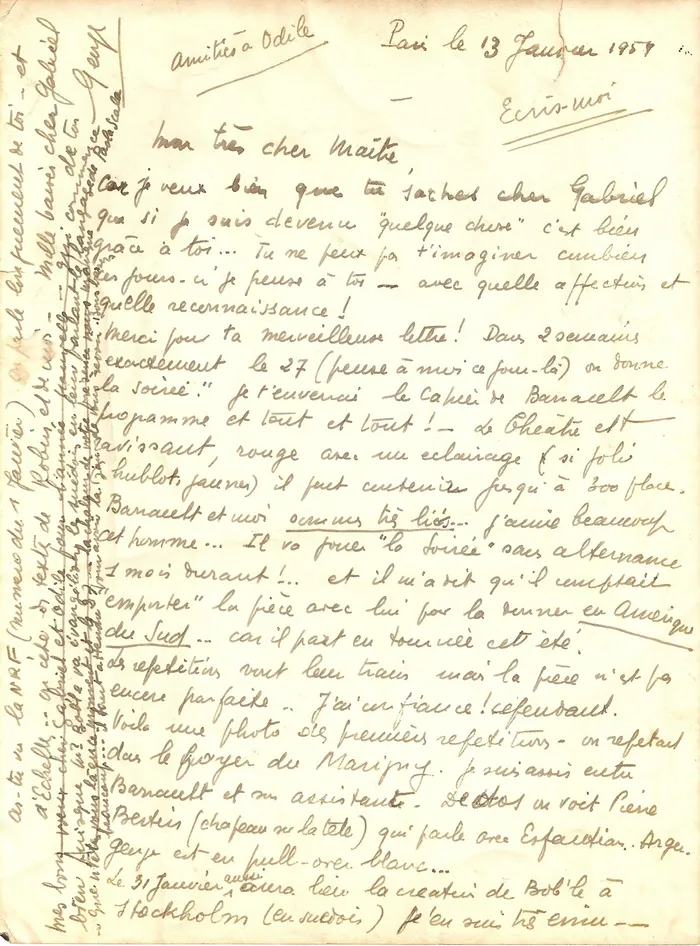 Amitiés à Odile
Paris le 13 Janvier 1954
Ecris-moi
Mon très cher Maître
Car je veux bien que tu saches cher Gabriel
que si je suis devenu "quelque chose" c'est bien
grâce à toi... Tu ne peux pas t'imaginer combien
ces jours-ci je pense à toi — avec quelle affection et
quelle reconnaissance !
Merci pour ta merveilleuse lettre ! Dans 2 semaines
exactement le 27 (pense à moi ce jour-là) on donne
"la soirée"! Je t'enverrai le Cahier de Barrault le
programme et tout et tout ! — Le Théâtre est
ravissant, rouge avec un eclairage (si joli
hublots jaunes) il peut contenir jusqu'à 300 place.
Barrault et moi sommes très liés... j'aime beaucoup
cet homme... Il va jouer "la Soirée" sans alternance
1 mois durant !... et il m'a dit qu'il comptait
"emporter" la pièce avec lui pour la donner en Amérique
du Sud... car il part en tournée cet été.
Les repetitions vont leur train mais la pièce n'est pas
encore parfaite.. J'ai confiance ! cependant.
Voilà une photo des premières repetitions - on repetait
dans le foyer du Marigny. Je suis assis entre
Barrault et son assistante. De dos on voit Pierre
Bertin (chapeau sur la tête) qui parle avec
George est en pull-over blanc...
Le 31 Janvier aussi aura lieu la creation de Bob'le à
Stockholm (en suedois) j'en suis très emu —
as-tu vu la NRF (numero du 1 Janvier) on parle longuement de toi - et
d'Echelle... qu'à côté des texte de Robin et de moi - Mille baisers cher Gabriel
Mes bons voeux cher Gabriel et Odile pour l'année nouvelle